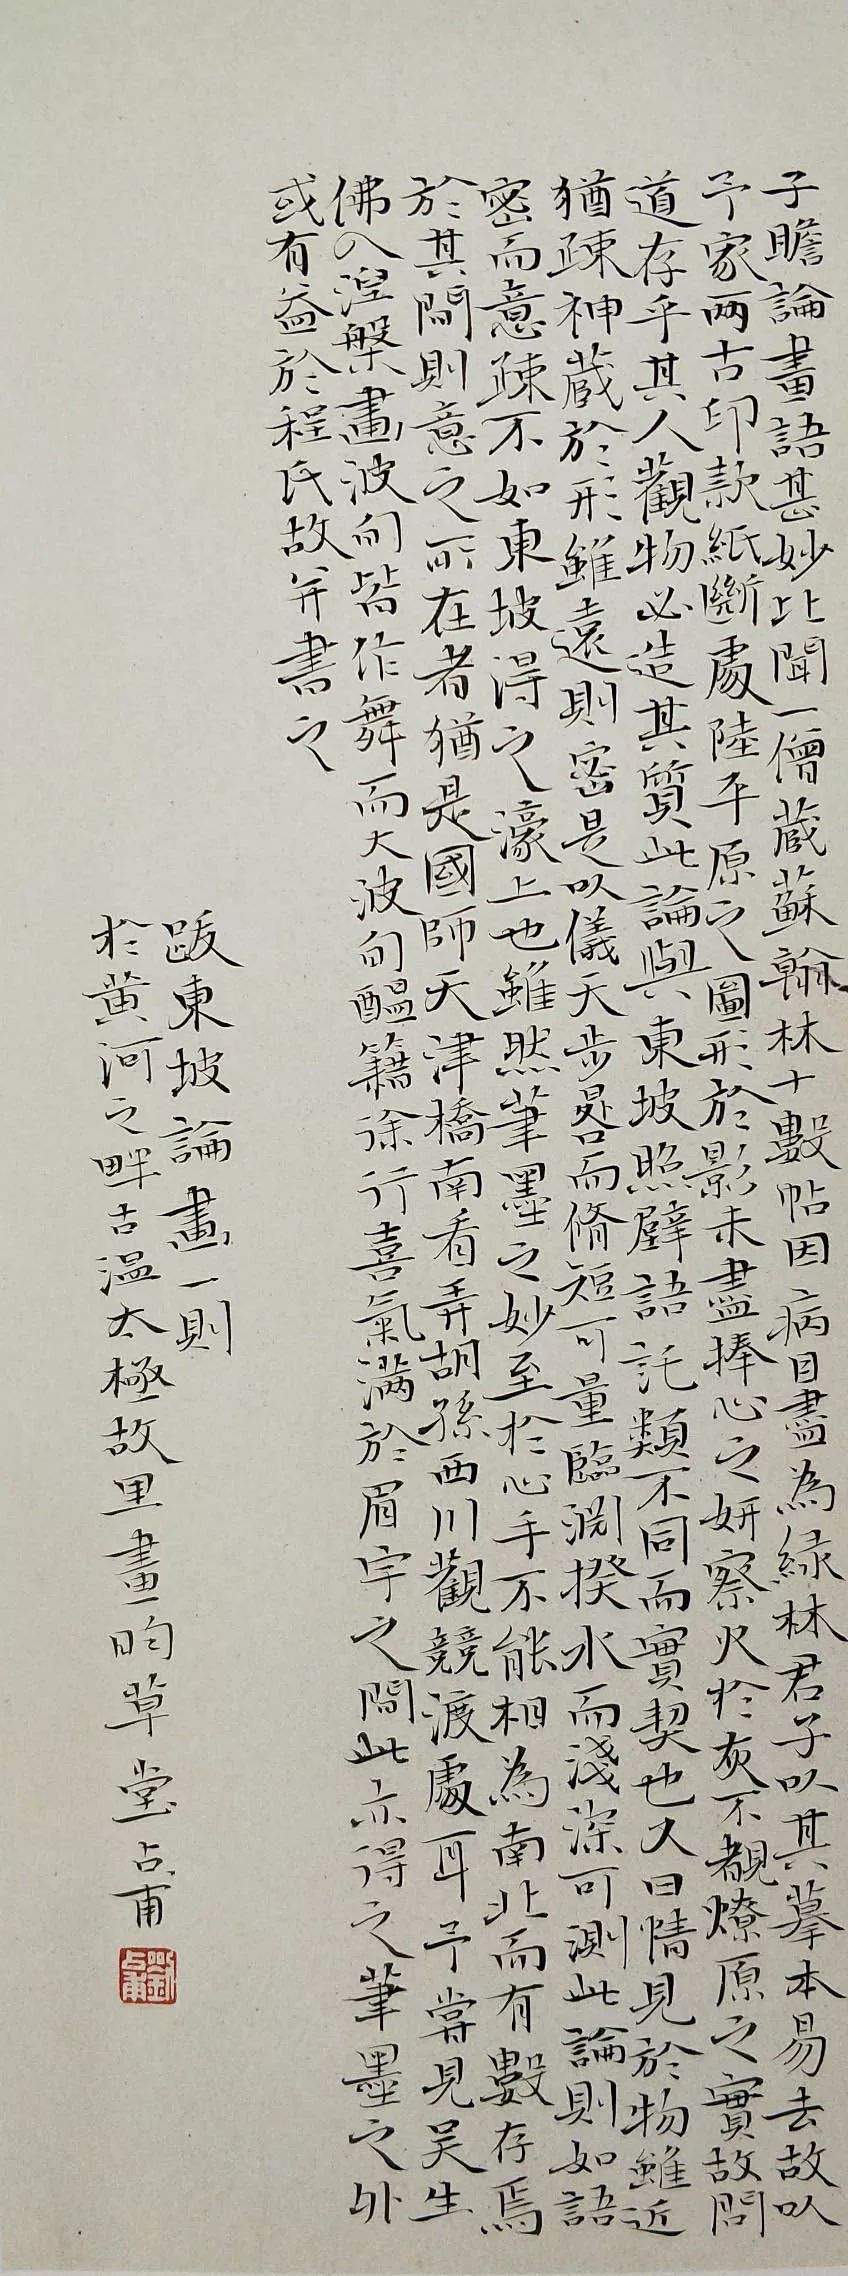 子瞻論畫語甚妙比聞一僧蔵蘇翰林十數帖因病目盡為緑林君子以其摹本易去故以
予家兩古印款紙斷處陸平原之圖形於影未盡捧心之妍察火於灰不覩燎原之實故問
道存乎其人觀物必造其質此論與東坡照壁語託類不同而實契也又曰情見於物雖近
猶疎神蔵於形雖遠則密是以儀天步晷而脩短可量臨淵揆水而淺深可測此論則如語
密而意疎不如東坡得之濠上也雖然筆墨之妙至於心手不能相為南北而有數存焉
於其間則意之所在者猶是國師天津橋南看弄胡孫西川觀競渡處耳予嘗見吴生
佛入涅槃畫波旬皆作舞而大波旬醖籍徐行喜氣满於眉宇之間此亦得之筆墨之外
或有益於程氏故并書之
跋東坡論畫一則
於黄河之畔古温太極故里畫昀草堂占甫
劉占甫